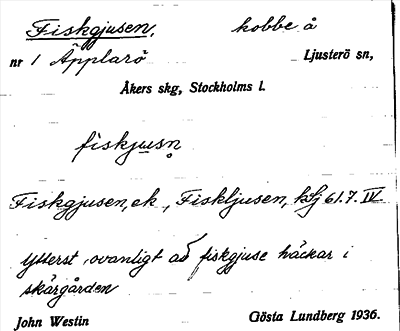 Fiskgjusen, kobbe å
nr 1 Äpplarö Ljusterö sn,
Åkers skg, Stockholms l.
fiskjusn
Fiskgjusen, ek, Fiskljusen, hsfj 61.7. IV.
Ytterst ovanligt att fiskgjuse häckar i
skärgården
John Westin Gösta Lundberg 1936.